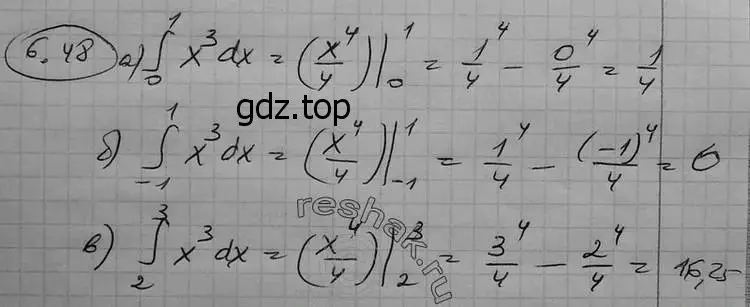 6.48 а) ∫₀¹ x³dx = (x⁴/4)|₀¹ = 1⁴/4 − 0⁴/4 = 1/4
gdz.top
б) ∫₋₁¹ x³dx = (x⁴/4)|₋₁¹ = 1⁴/4 − (−1)⁴/4 = 0
reshak.ru
в) ∫₂³ x³dx = (x⁴/4)|₂³ = 3⁴/4 − 2⁴/4 = 16,25